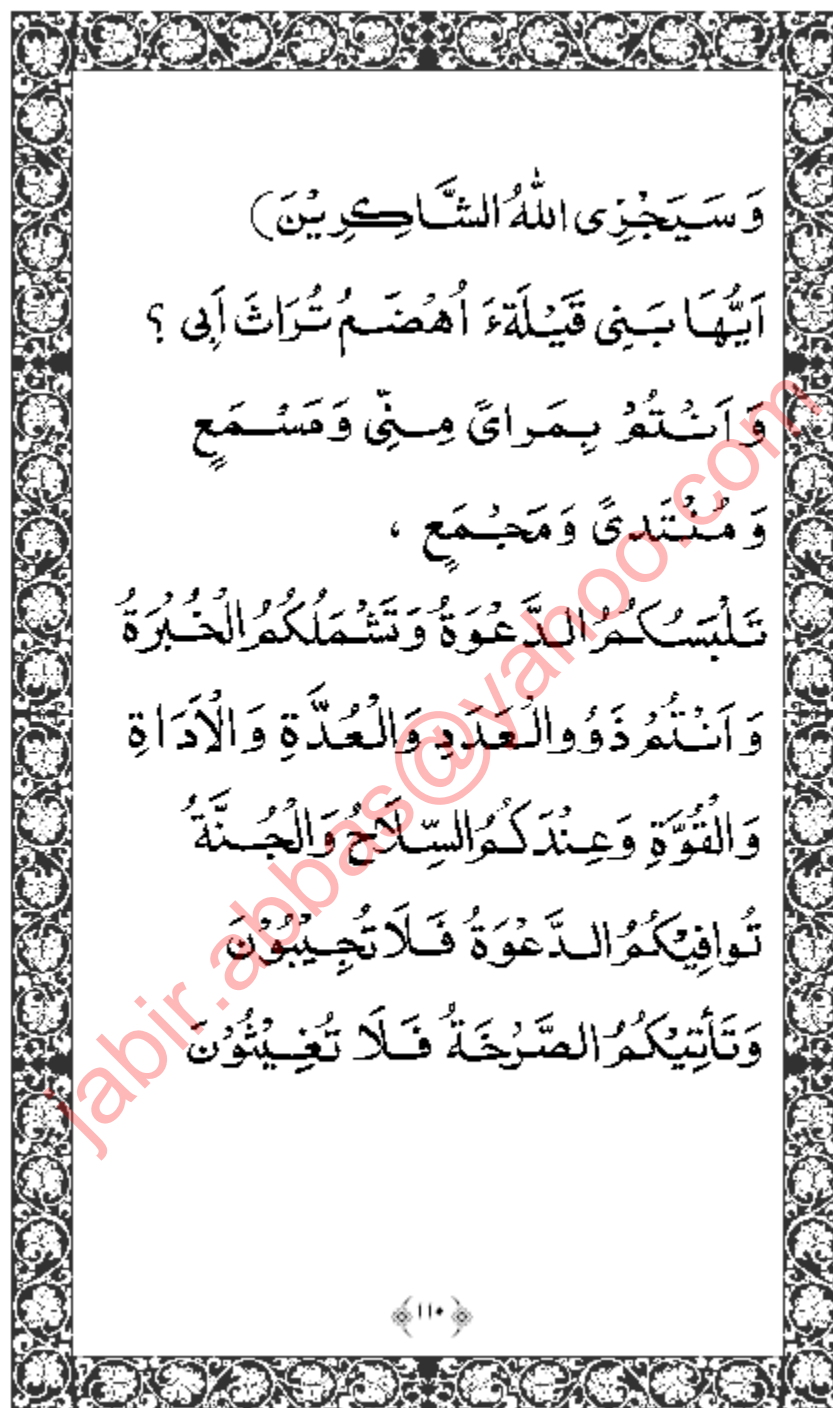 وَسَيَجْزِى اللّٰهُ الشَّاكِرِيْنَ)
اَيُّهَا بَنِى قَيْلَةءَ اُهْضَمُ تُرَاثَ اَبِى ؟
وَاَنْتُمْ بِمَرایً مِنِّى وَمَسْمَعٍ
وَمُنْتَدىً وَمَجْمَعٍ ،
تَلْبَسُكُمُ الدَّعْوَةُ وَتَشْمَلُكُمُ الْخُبْرَةُ
وَاَنْتُمْ ذَوُوالْعَدَدِ وَالْعُدَّةِ وَالْاَدَاةِ
وَالْقُوَّةِ وَعِنْدَكُمُ السِّلَاحُ وَالْجُنَّةُ
تُوافِيْكُمُ الدَّعْوَةُ فَلَا تُجِيْبُوْنَ
وَتَأْتِيْكُمُ الصَّرْخَةُ فَلَا تُغِيْثُوْنَ
١١٠
jabir.abbas@yahoo.com